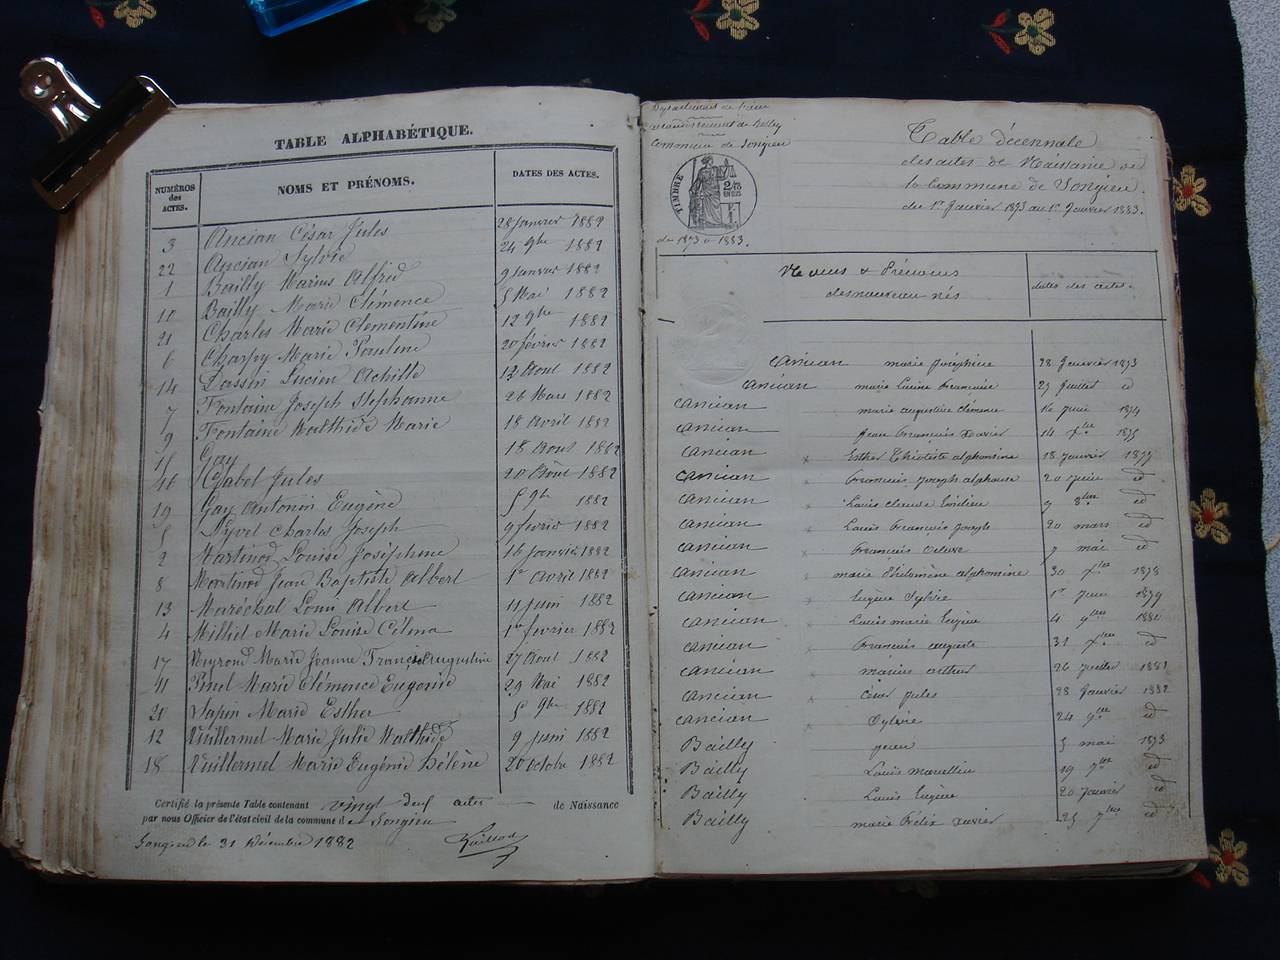 TABLE ALPHABÉTIQUE.
NUMÉROS des ACTES. NOMS ET PRÉNOMS. DATES DES ACTES.
3 Ancian César Jules 28 Janvier 1882
22 Ancian Sylvie 24 9bre 1882
1 Bailly Marius Alfred 9 Janvier 1882
10 Bailly Marie Clémence 5 Mai 1882
21 Charles Marie Clementine 12 9bre 1882
6 Charpy Marie Pauline 20 février 1882
14 Dassin Lucien Achille 12 Aout 1882
7 Fontaine Joseph Stephanne 26 Mars 1882
9 Fontaine Malthide Marie 18 Avril 1882
15 Gay 18 Aout 1882
16 Jabel Jules 20 Août 1882
19 Gay Antonin Eugène 5 9bre 1882
5 Nyvel Charles Joseph 9 fevrier 1882
2 Martinod Louise Joséphine 16 Janvier 1882
8 Martinod Jean Baptiste Albert 1er Avril 1882
13 Maréchal Louis Albert 11 juin 1882
4 Milliet Marie Louise Célina 1er fevrier 1882
17 Neyroud Marie Jeanne Françoise Augustine 27 Aout 1882
11 Pinel Marie Clémence Eugénie 29 Mai 1882
20 Tapin Marie Esther 5 9bre 1882
12 Vuillermet Marie Julie Malthide 9 juin 1882
18 Vuillermet Marie Eugénie Hélène 20 octobre 1882
Certifié la présente Table contenant vingt deux actes de Naissance
par nous Officier de l'état civil de la commune de Songieu
Songieu le 31 Décembre 1882
Département de l'ain
arrondissement de Belley
Commune de Songieu
TIMBRE
de 1873 à 1883.
Table décennale
des actes de Naissance de
la Commune de Songieu.
du 1er Janvier 1873 au 1er Janvier 1883.
Noms & Prénoms des nouveau nés dates des actes.
ancian marie Joséphine 28 Janvier 1873
ancian marie Louise Françoise 29 Juillet id
ancian marie augustine clémence 16 Juin 1874
ancian Jean François Xavier 14 Xbre 1875
ancian Esther Théotiste alphonsine 18 Janvier 1877
ancian François Joseph alphonse 20 Juin id
ancian Louis claude Emilien 9 8bre id
ancian Louis François Joseph 20 mars id
ancian François 7 mai id
ancian marie Philomène alphonsine 30 Xbre 1878
ancian Eugène Sylvie 1er Juin 1879
ancian Louis marie Eugène 4 9bre 1880
ancian François auguste 31 Xbre id
ancian marius arthur 26 Juillet 1881
ancian César Jules 28 Janvier 1882
ancian Sylvie 24 9bre id
Bailly 5 mai 1873
Bailly Louis marcellin 19 7bre id
Bailly Louis Eugène 20 Janvier
Bailly marie Félix Xavier 25 7bre id